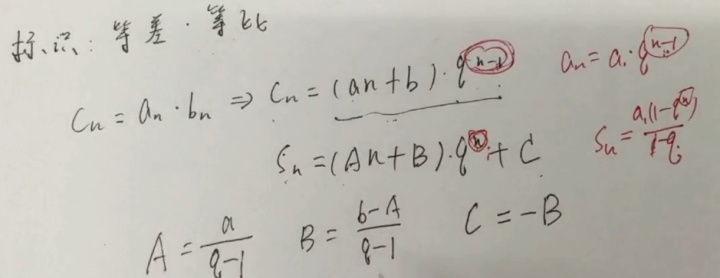 标识：等差·等比
Cn = an·bn ⇒ Cn = (an+b)·q^(n-1)
an = a₁·q^(n-1)
Sn = (An+B)·q^n + C
Sn = a₁(1-q^n)/(1-q)
A = a/(q-1) B = (b-A)/(q-1) C = -B